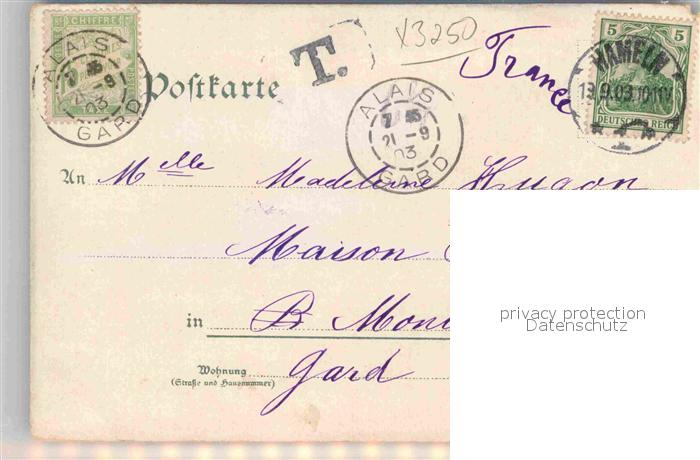 CHIFFRE
ALAIS
GARD
Postkarte
T.
X3250
France
5 5
HAMELN
19.9.03.10-11V.
DEUTSCHES REICH
ALAIS
21 -9
03
GARD
An Melle Madeleine Hugon
Maison
in B
Gard
Wohnung
(Straße und Hausnummer)
privacy protection
Datenschutz